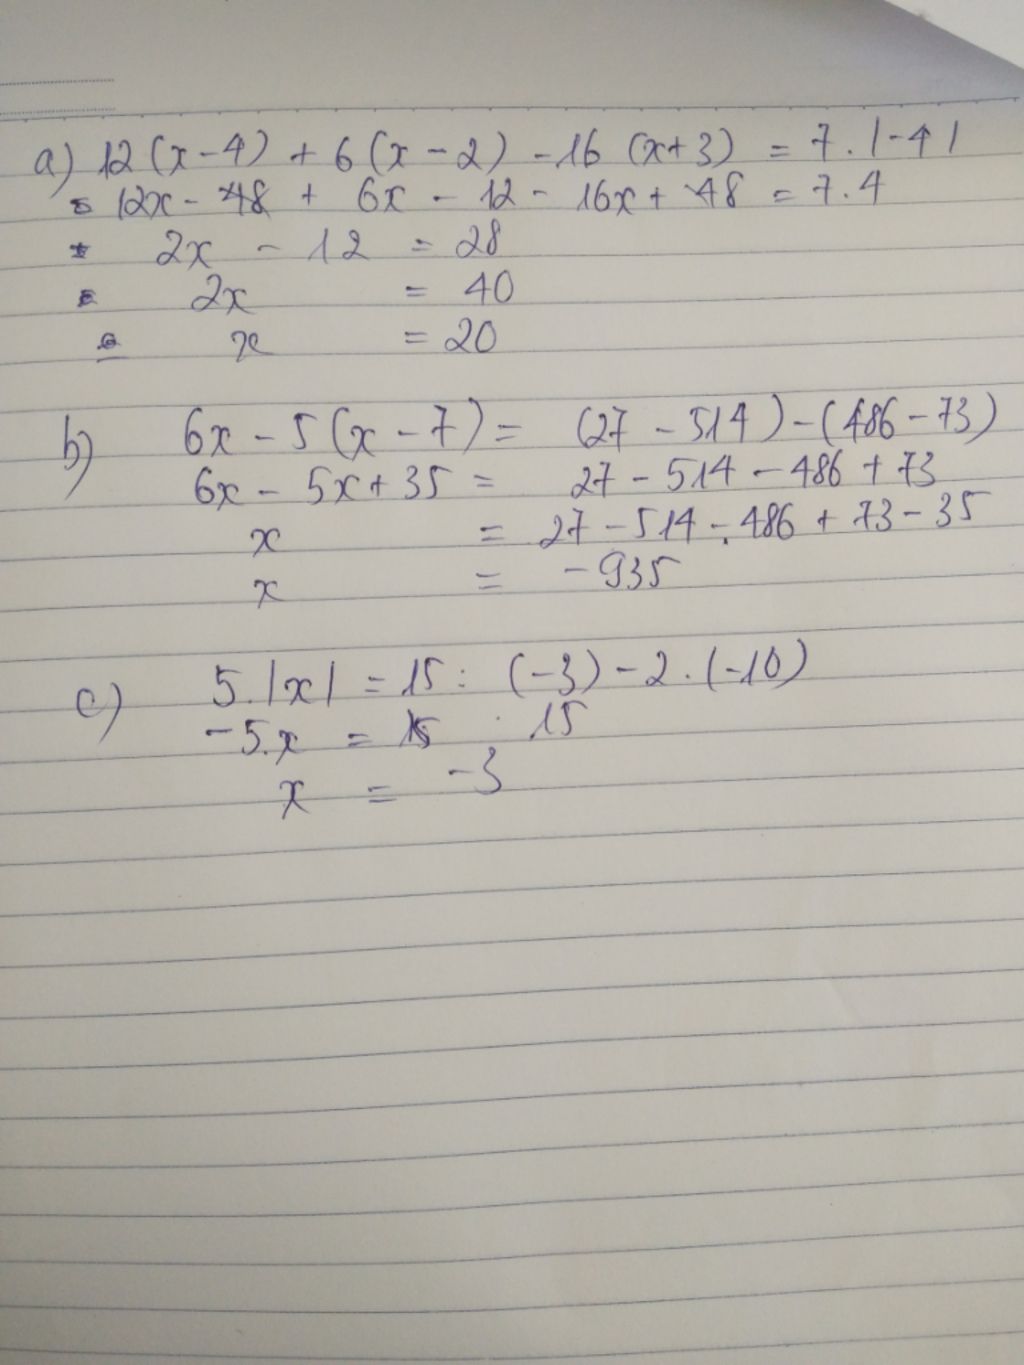 a) 12(x-4) + 6(x-2) -16 (x+3) = 7.|-4|
12x - 48 + 6x - 12 - 16x + 48 = 7.4
2x - 12 = 28
2x = 40
x = 20
b) 6x - 5(x-7) = (27 - 514) - (486-73)
6x - 5x + 35 = 27 - 514 - 486 + 73
x = 27 - 514 - 486 + 73 - 35
x = -935
c) 5.|x| = 15 : (-3) - 2.(-10)
-5.x = 15
x = -3